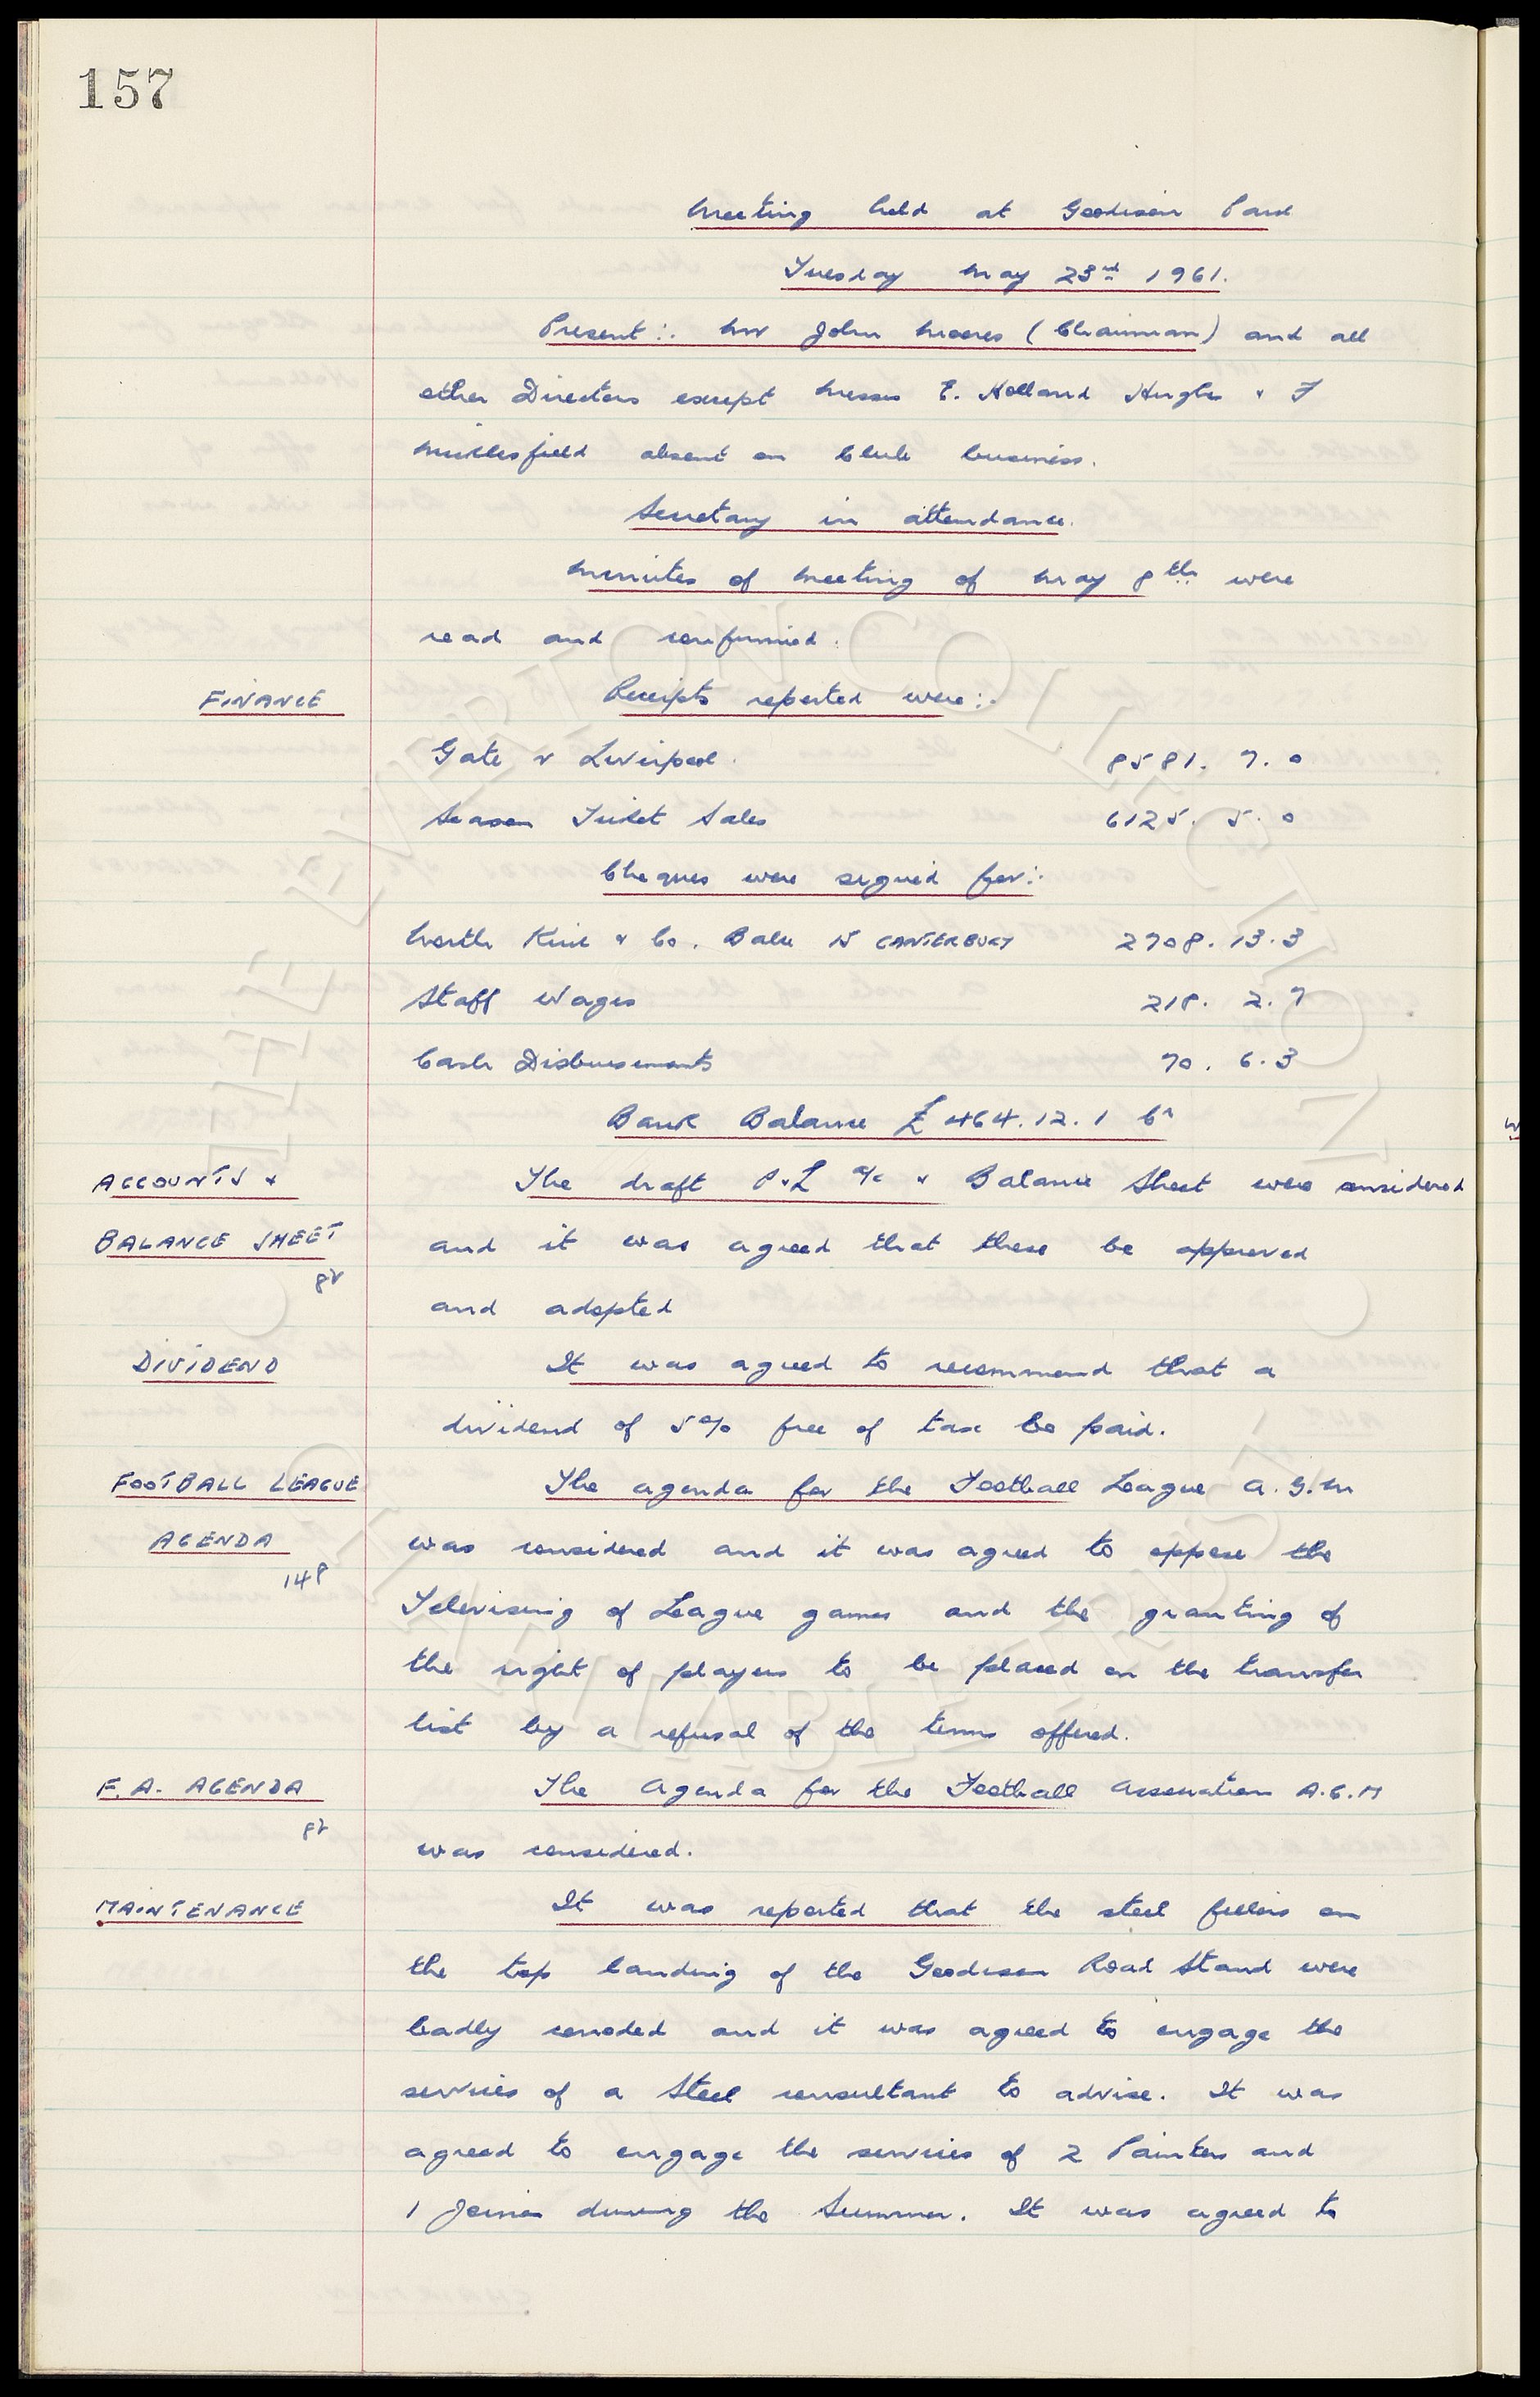 157
Meeting held at Goodison Park
Tuesday May 23rd 1961.
Present:. Mr John Moores (Chairman) and all
other Directors except Messrs E. Holland Hughes & F
Micklesfield absent on Club business.
Secretary in attendance.
Minutes of Meeting of May 8th were
read and confirmed.
FINANCE Receipts reported were:.
Gate v Liverpool. 8581. 7. 0
Season Ticket Sales 6125. 5. 0
Cheques were signed for:.
North Kent & Co. Balce 15 CANTERBURY 2708. 13. 3
Staff Wages 218. 2. 7
Cash Disbursements 70. 6. 3
Bank Balance £464.12.1 Cr
ACCOUNTS & The draft P&L a/c & Balance Sheet were considered
BALANCE SHEET and it was agreed that these be approved
82
and adopted
DIVIDEND It was agreed to recommend that a
dividend of 5% free of tax be paid.
FOOTBALL LEAGUE The agenda for the Football League A.G.M
AGENDA was considered and it was agreed to oppose the
148
Televising of League games and the granting of
the right of players to be placed on the transfer
list by a refusal of the terms offered.
F.A. AGENDA The Agenda for the Football Association A.G.M
82
was considered.
MAINTENANCE It was reported that the steel fillers on
the top landing of the Goodison Road Stand were
badly corroded and it was agreed to engage the
services of a Steel consultant to advise. It was
agreed to engage the services of 2 Painters and
1 Joiner during the Summer. It was agreed to